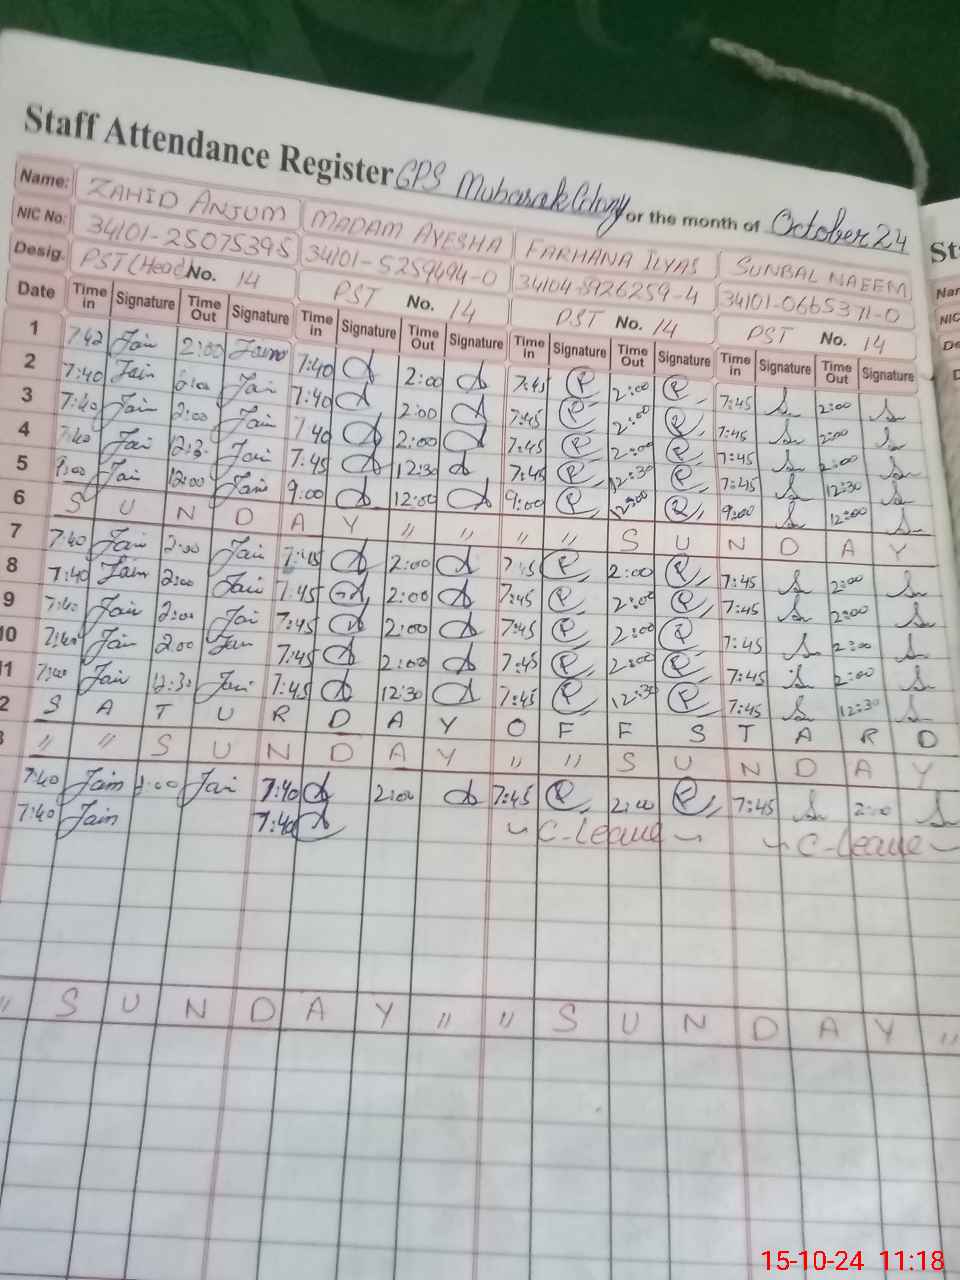 Staff Attendance Register GPS Mubarak Colony or the month of October 24
Name: ZAHID ANJUM MADAM AYESHA FARHANA ILYAS SUNBAL NAEEM
NIC No: 34101-25075395 34101-5259494-0 34104-5926259-4 34101-0665371-0
Desig. PST (Head No. 14 PST No. 14 PST No. 14 PST No. 14
Date Time in Signature Time Out Signature Time in Signature Time Out Signature Time in Signature Time Out Signature Time in Signature Time Out Signature
1 7:42 2:00 7:40 2:00 7:45 2:00 7:45 2:00
2 7:40 7:40 2:00 7:45 2:00 7:45 2:00
3 7:40 2:00 7:40 2:00 7:45 2:00 7:45 2:00
4 7:40 12:3 7:45 12:30 7:45 12:30 7:45 12:30
5 9:00 12:00 9:00 12:00 9:00 12:00 9:00 12:00
6 S U N D A Y " " " " S U N D A Y
7 7:40 2:00 7:45 2:00 7:45 2:00 7:45 2:00
8 7:40 2:00 7:45 2:00 7:45 2:00 7:45 2:00
9 7:40 2:00 7:45 2:00 7:45 2:00 7:45 2:00
10 7:40 2:00 7:45 2:00 7:45 2:00 7:45 2:00
11 7:40 12:30 7:45 12:30 7:45 12:30 7:45 12:30
2 S A T U R D A Y O F F S T A R D
" " S U N D A Y " " S U N D A Y
7:40 7:40 2:00 7:45 2:00 7:45 2:00
7:40 7:40 C-Leave C-Leave
" S U N D A Y " " S U N D A Y "
St
Nar
NIC
De
15-10-24 11:18